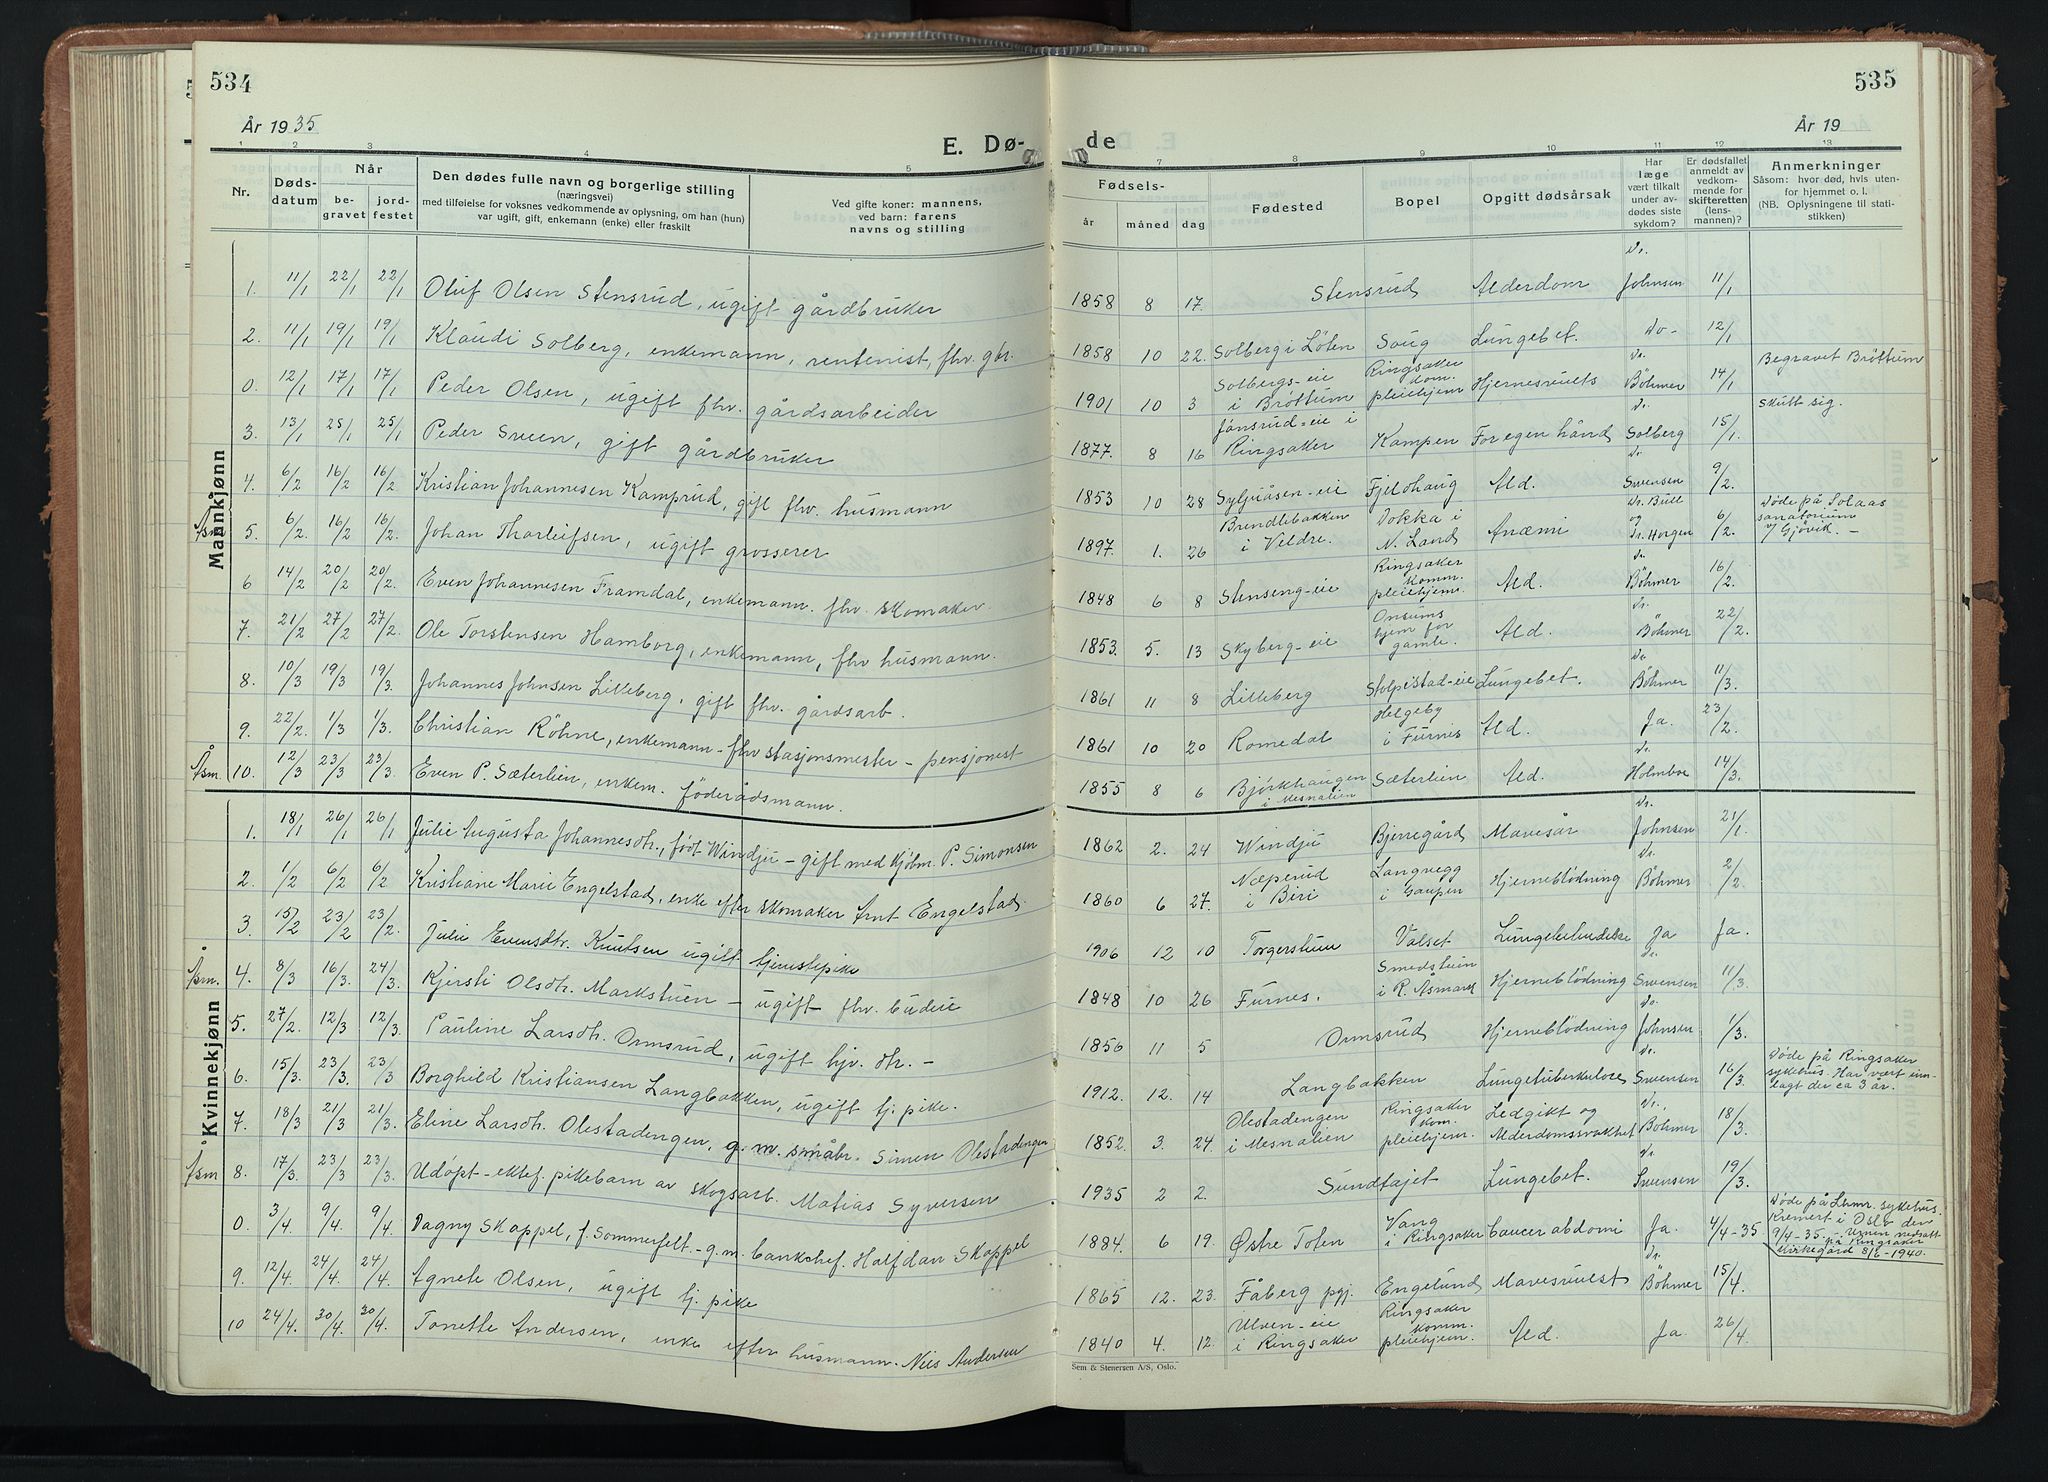 534
535
År 1935
År 19
E. Dø-
de
1 2 3 4 5 7 8 9 10 11 12 13
Nr.
Døds-
datum
Når
be-
gravet
jord-
festet
Den dødes fulle navn og borgerlige stilling
(næringsvei)
med tilføielse for voksnes vedkommende av oplysning, om han (hun)
var ugift, gift, enkemann (enke) eller fraskilt
Ved gifte koner: mannens,
ved barn: farens
navns og stilling
Fødsels-
år måned dag
Fødested
Bopel
Opgitt dødsårsak
Har
læge
vært tilkalt
under av-
dødes siste
sykdom?
Er dødsfallet
anmeldt av
vedkom-
mende for
skifteretten
(lens-
mannen)?
Anmerkninger
Såsom: hvor død, hvis uten-
for hjemmet o. l.
(NB. Oplysningene til stati-
stikken)
Mannkjønn
1. 11/1 22/1 22/1 Oluf Olsen Stensrud, ugift gårdbruker 1858 8 17. Stensrud Alderdom Dr. Johnsen 11/1
2. 11/1 19/1 19/1 Klaudi Solberg, enkemann, rentenist, fhv. gbr. 1858 10 22. Solberg i Löten Soug Lungebet. Do- 12/1
0. 12/1 17/1 17/1 Peder Olsen, ugift fhv. gårdsarbeider 1901 10 3 Solbergs-eie i Bröttum Ringsaker dom. pleiehjem Hjernesvulst Dr. Böhmer 14/1 Begravet Bröttum
3. 13/1 25/1 25/1 Peder Sveen, gift gårdbruker 1877. 8 16 Jönsrud-eie i Ringsaker Kampen For egen hånd Dr. Solberg 15/1. Skutt sig.
4. 6/2 16/2 16/2 Kristian Johannesen Kamprud, gift fhv. husmann 1853 10 28 Syljuåsen-eie Fjeldhaug Ald. Dr. Svensen 9/2.
Åsm 5. 6/2. 16/2. 16/2. Johan Thorleifsen, ugift grosserer 1897. 1. 26 Brendlebakken i Veldre. Dokka i N. Land Anæmi Dr. Bull og Dr. Horgen 6/2. Döde på Solaas sanatorium v/ Gjövik. -
6 14/2 20/2 20/2. Even Johannesen Framdal, enkemann. fhv. skomaker. 1848 6 8 Stenseng-eie Ringsaker Komm. pleiehjem. Ald. Dr. Böhmer 16/2.
7. 21/2 27/2 27/2. Ole Torstensen Hamborg, enkemann, fhv husmann. 1853. 5. 13 Skyberg-eie Onsums hjem for gamle. Ald. Dr. Böhmer 22/2.
8. 10/3 19/3 19/3. Johannes Johnsen Lilleberg, gift fhv. gårdsarb. 1861 11 8 Lilleberg Stolpestad-eie Lungebet. Dr. Böhmer 11/3.
9. 22/2. 1/3 1/3. Christian Röhne, enkemann - fhv stasjonsmester - pensjonest 1861 10 20 Romedal Helgeby i Furnes Ald. Ja. 23/2.
Åsm. 10. 12/3 23/3 23/3. Even P. Sæterlien, enkem. föderådsmann. 1855 8 6 Bjørkhaugen i Mesnalien Sæterlien Ald. Dr. Holmboe 14/3.
Kvinnekjønn
1. 18/1 26/1 26/1 Julie Augusta Johannesdtr., født Windju - gift med kjøbm. P. Simonsen 1862 2. 24 Windju Bjerregård Mavesår Dr. Johnsen 21/1.
2. 1/2 6/2 6/2 Kristiane Marie Engelstad, enke efter skomaker Arnt Engelstad. 1860 6 27. Næperud i Biri Langvegg i Gaupen Hjerneblödning Dr. Böhmer 2/2.
3. 15/2 23/2 23/2. Julie Evensdtr. Knutsen ugift tjenstepike 1906 12 10 Torgerstuen Valset Lungebetendelse Ja Ja.
Åsm. 4. 8/3 16/3 24/3. Kjersti Olsdtr. Markstuen - ugift fhv. budeie 1848 10 26 Furnes. Smedstuen i R. Åsmark Hjerneblödning Dr. Svensen 11/3.
5. 27/2. 12/3 12/3. Pauline Larsdtr. Ormsrud, ugift hjv. dtr. - 1856 11 5 Ormsrud Hjerneblödning Dr. Johnsen 1/3.
6. 15/3. 23/3. 23/3 Borghild Kristiansen Langbakken, ugift tj. pike. 1912. 12. 14 Langbakken Lungetuberkulose Dr. Svensen 16/3. Döde på Ringsaker sykehus. Har vært inn- lagt der ca 3 år.
7. 18/3 21/3 21/3. Eline Larsdtr. Olestadengen, g. m. småbr. Simen Olestadengen 1852. 3. 24. Olestadengen i Mesnalien Ringsaker kom. pleiehjem. Ledgikt og Alderdomssvakhet Dr. Böhmer 18/3.
Åsm 8. 17/3. 23/3 23/3. Udöpt - ektef. pikebarn av skogsarb. Matias Syversen 1935 2 2. Sundtajet Lungebet. Dr. Svensen 19/3.
0. 3/4. 9/4. 9/4. Dagny Skappel, f. Sommerfelt. - g. m. banksjef. Halfdan Skappel 1884. 6 19. Østre Toten Vang i Ringsaker Cancer abdomi Ja. 4/4-35 Döde på Lhmr. sykehus. Kremert i Oslo den 9/4-35. - Urnen nedsatt på Ringsaker kirkegård 8/6-1940.
9. 12/4. 24/4. 24/4. Agnete Olsen, ugift tj. pike 1865 12. 23. Fåberg pgj. Engelund Mavesvulst Dr. Böhmer 15/4.
10 24/4. 30/4. 30/4. Tonette Andersen, enke efter husmann. Nils Andersen 1840 4. 12. Ulven-eie i Ringsaker Ringsaker komm. pleiehjem. Ald. Ja. 26/4.
Sem & Stenersen A/S, Oslo.